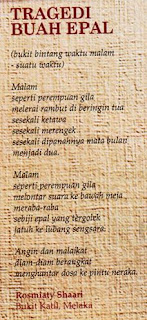 TRAGEDI
BUAH EPAL
(bukit bintang waktu malam
- suatu waktu)
Malam
seperti perempuan gila
melerai rambut di beringin tua
sesekali ketawa
sesekali merengek
sesekali dipanahnya mata bulan
menjadi dua.
Malam
seperti perempuan gila
melontar suara ke bawah meja
meraba-raba
sebiji epal yang tergolek
jatuh ke lubang sengsara.
Angin dan malaikat
diam-diam berangkat
menghantar dosa ke pintu neraka.
Rosmiaty Shaari
Bukit Katil, Melaka